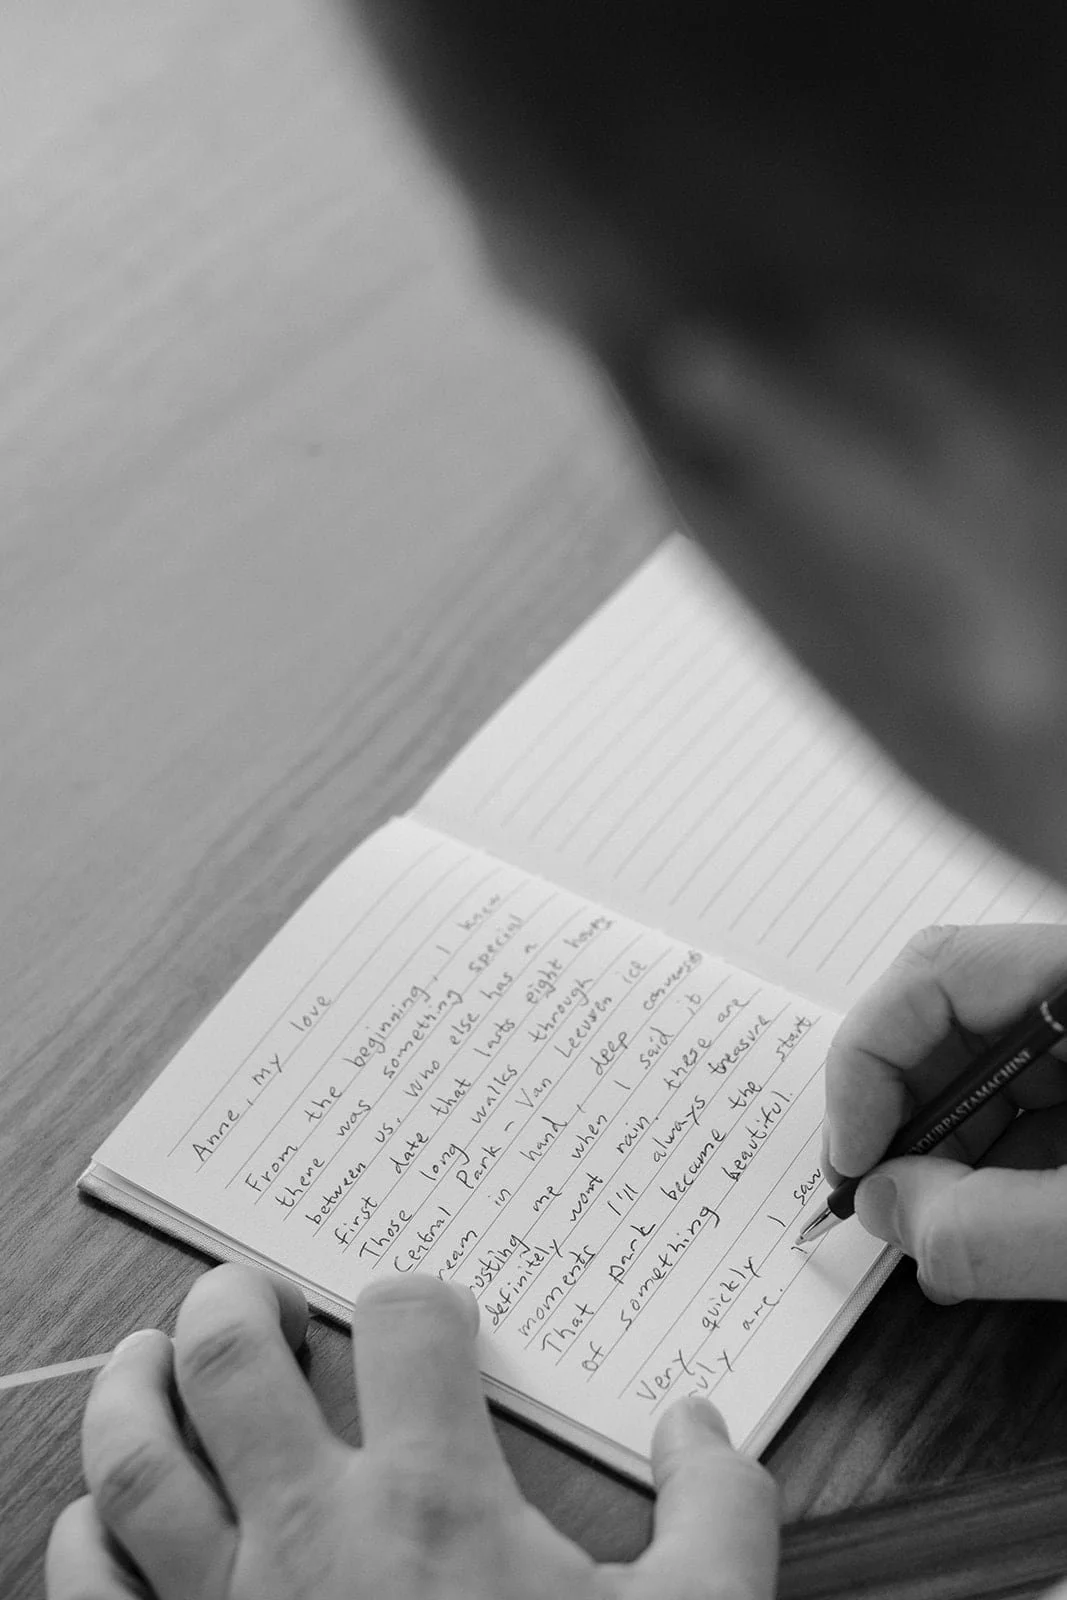 Anne, my love
From the beginning, I knew
there was something special
between us. Who else has a
first date that lasts eight hours
Those long walks through
Central Park - Van Leeuwen ice
ream in hand, deep
usting me when I said it
definitely wont rain. these are
moments I'll always treasure
That park became the start
of something beautiful.
Very quickly I saw
ruly are. I
DURPASTAMACHINE